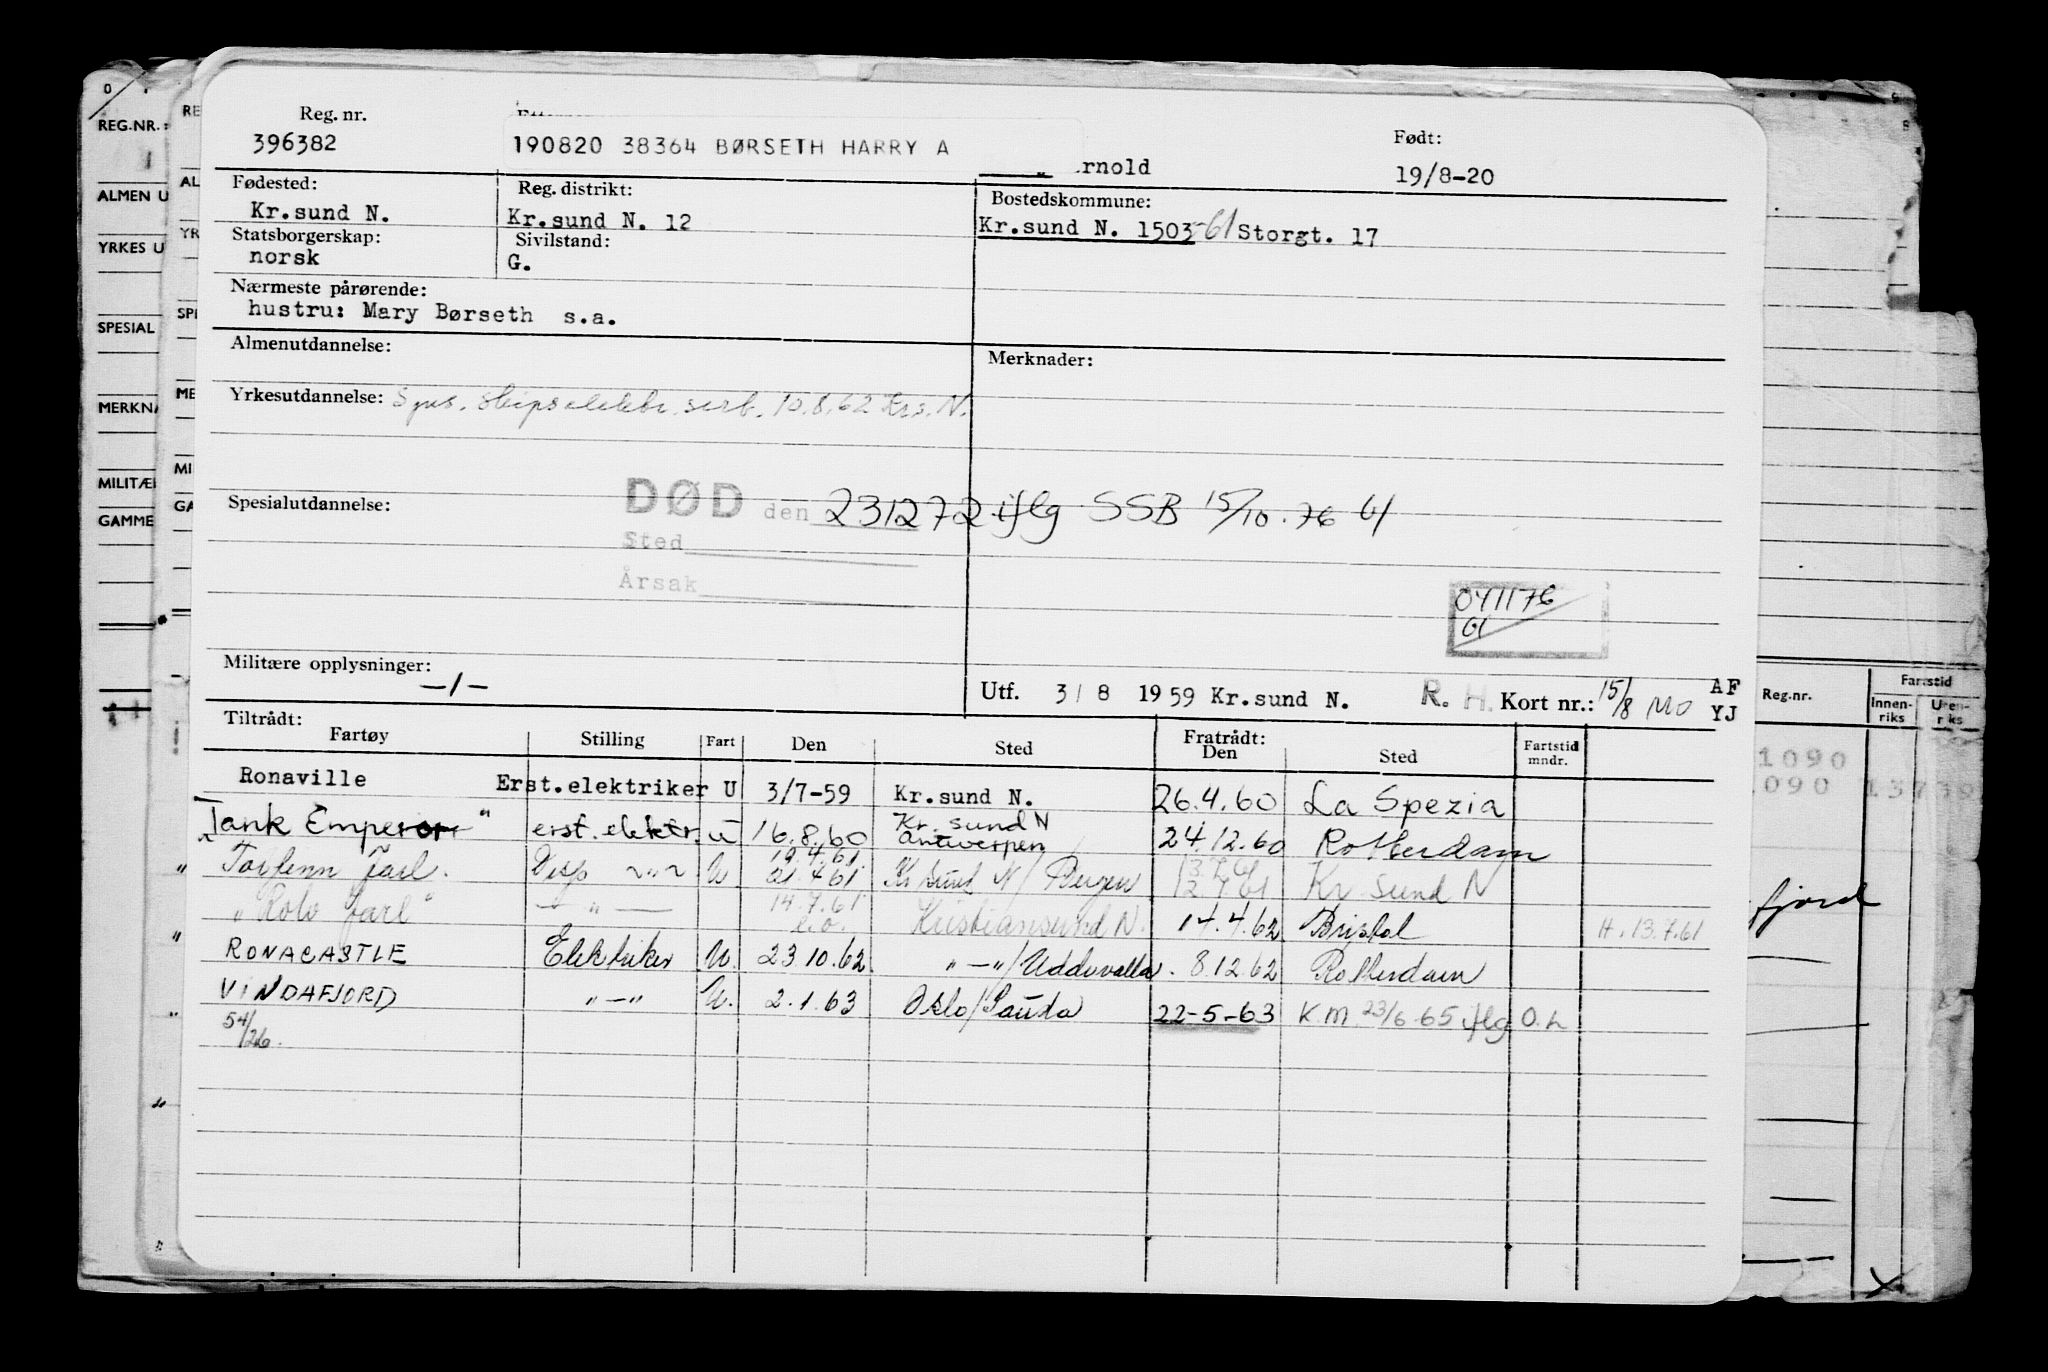 Reg. nr.
396382
190820 38364 BØRSETH HARRY A
rnold
Født:
19/8-20
Fødested:
Kr.sund N.
Reg. distrikt:
Kr.sund N. 12
Bostedskommune:
Kr.sund N. 1503-61 Storgt. 17
Statsborgerskap:
norsk
Sivilstand:
G.
Nærmeste pårørende:
hustru: Mary Børseth s.a.
Almenutdannelse:
Merknader:
Yrkesutdannelse: 10.8.62 Krs. N.
Spesialutdannelse:
DØD den 231272 iflg SSB 15/10.76 Gl
Sted
Årsak
041176
Gl
Militære opplysninger:
-/-
Utf. 3/8 1959 Kr.sund N. R. H. Kort nr.: 15/8 MO AF YJ
Tiltrådt:
Fartøy Stilling Fart Den Sted Fratrådt: Den Sted Fartstid mndr.
Ronaville Erst.elektriker U 3/7-59 Kr.sund N. 26.4.60 La Spezia
"Tank Emperor" erst. elektr. U 16.8.60 Kr. sund N Antwerpen 24.12.60 Rotterdam
Jarl. U 19.4.61 21.4.61 Kr sund N/ Bergen 13.7.61 12.7.61 Kr sund N
"Rolv Jarl" — " — 14.7.61 Kristiansund N. 14.4.62 Bristol H. 13.7.61
RONACASTLE Elektriker U. 23.10.62 "-"/Uddevalla. 8.12.62 Rotterdam
VINDAFJORD "-" U. 2.1.63 Oslo/Sauda 22-5-63 K.M. 23/6-65 iflg O.L
54/26.
REG.NR.
ALMEN U
YRKES U
SPESIAL
MERKNA
MILITÆR
GAMME
RE
AL
YR
SPE
ME
MI
GA
Reg.nr.
Fartstid
Innen-riks
Uten-riks
1090
.090 13739
fjord